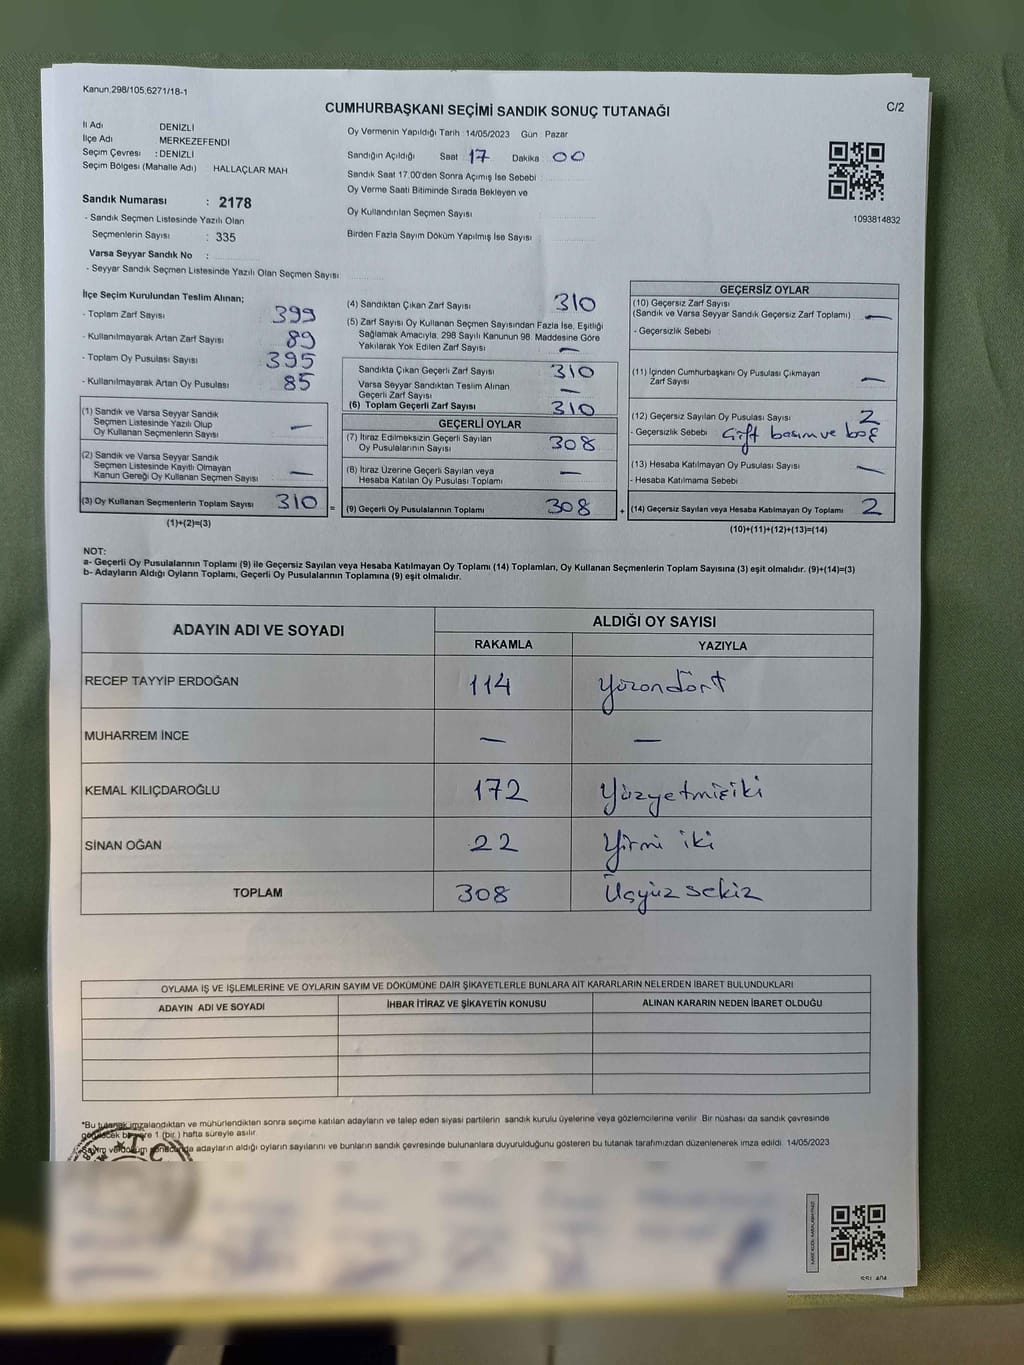 Kanun.298/105,6271/18-1
CUMHURBAŞKANI SEÇİMİ SANDIK SONUÇ TUTANAĞI
C/2
İl Adı DENİZLİ
İlçe Adı MERKEZEFENDİ
Seçim Çevresi : DENİZLİ
Seçim Bölgesi (Mahalle Adı) HALLAÇLAR MAH
Sandık Numarası : 2178
- Sandık Seçmen Listesinde Yazılı Olan
Seçmenlerin Sayısı : 335
Varsa Seyyar Sandık No :
- Seyyar Sandık Seçmen Listesinde Yazılı Olan Seçmen Sayısı
Oy Vermenin Yapıldığı Tarih : 14/05/2023 Gün : Pazar
Sandığın Açıldığı Saat 17 Dakika 00
Sandık Saat 17.00'den Sonra Açımış İse Sebebi
Oy Verme Saati Bitiminde Sırada Bekleyen ve
Oy Kullandırılan Seçmen Sayısı
Birden Fazla Sayım Döküm Yapılmış İse Sayısı
1093814832
İlçe Seçim Kurulundan Teslim Alınan;
- Toplam Zarf Sayısı 399
- Kullanılmayarak Artan Zarf Sayısı 89
- Toplam Oy Pusulası Sayısı 395
- Kullanılmayarak Artan Oy Pusulası 85
(1) Sandık ve Varsa Seyyar Sandık
Seçmen Listesinde Yazılı Olup
Oy Kullanan Seçmenlerin Sayısı —
(2) Sandık ve Varsa Seyyar Sandık
Seçmen Listesinde Kayıtlı Olmayan
Kanun Gereği Oy Kullanan Seçmen Sayısı —
(3) Oy Kullanan Seçmenlerin Toplam Sayısı 310 =
(1)+(2)=(3)
(4) Sandıktan Çıkan Zarf Sayısı 310
(5) Zarf Sayısı Oy Kullanan Seçmen Sayısından Fazla İse, Eşitliği
Sağlamak Amacıyla, 298 Sayılı Kanunun 98. Maddesine Göre
Yakılarak Yok Edilen Zarf Sayısı —
Sandıkta Çıkan Geçerli Zarf Sayısı 310
Varsa Seyyar Sandıktan Teslim Alınan
Geçerli Zarf Sayısı —
(6) Toplam Geçerli Zarf Sayısı 310
GEÇERLİ OYLAR
(7) İtiraz Edilmeksizin Geçerli Sayılan
Oy Pusulalarının Sayısı 308
(8) İtiraz Üzerine Geçerli Sayılan veya
Hesaba Katılan Oy Pusulası Toplamı —
(9) Geçerli Oy Pusulalarının Toplamı 308 +
GEÇERSİZ OYLAR
(10) Geçersiz Zarf Sayısı
(Sandık ve Varsa Seyyar Sandık Geçersiz Zarf Toplamı) —
- Geçersizlik Sebebi
(11) İçinden Cumhurbaşkanı Oy Pusulası Çıkmayan
Zarf Sayısı —
(12) Geçersiz Sayılan Oy Pusulası Sayısı 2
- Geçersizlik Sebebi Çift basım ve boş
(13) Hesaba Katılmayan Oy Pusulası Sayısı —
- Hesaba Katılmama Sebebi
(14) Geçersiz Sayılan veya Hesaba Katılmayan Oy Toplamı 2
(10)+(11)+(12)+(13)=(14)
NOT:
a- Geçerli Oy Pusulalarının Toplamı (9) ile Geçersiz Sayılan veya Hesaba Katılmayan Oy Toplamı (14) Toplamları, Oy Kullanan Seçmenlerin Toplam Sayısına (3) eşit olmalıdır. (9)+(14)=(3)
b- Adayların Aldığı Oyların Toplamı, Geçerli Oy Pusulalarının Toplamına (9) eşit olmalıdır.
ADAYIN ADI VE SOYADI
ALDIĞI OY SAYISI
RAKAMLA YAZIYLA
RECEP TAYYİP ERDOĞAN 114 Yüzondört
MUHARREM İNCE — —
KEMAL KILIÇDAROĞLU 172 Yüzyetmişiki
SİNAN OĞAN 22 Yirmi iki
TOPLAM 308 Üçyüz sekiz
OYLAMA İŞ VE İŞLEMLERİNE VE OYLARIN SAYIM VE DÖKÜMÜNE DAİR ŞİKAYETLERLE BUNLARA AİT KARARLARIN NELERDEN İBARET BULUNDUKLARI
ADAYIN ADI VE SOYADI İHBAR İTİRAZ VE ŞİKAYETİN KONUSU ALINAN KARARIN NEDEN İBARET OLDUĞU
*Bu tutanak imzalandıktan ve mühürlendikten sonra seçime katılan adayların ve talep eden siyasi partilerin sandık kurulu üyelerine veya gözlemcilerine verilir. Bir nüshası da sandık çevresinde
bir yere 1 (bir) hafta süreyle asılır.
adayların aldığı oyların sayılarını ve bunların sandık çevresinde bulunanlara duyurulduğunu gösteren bu tutanak tarafımızdan düzenlenerek imza edildi. 14/05/2023
T.C